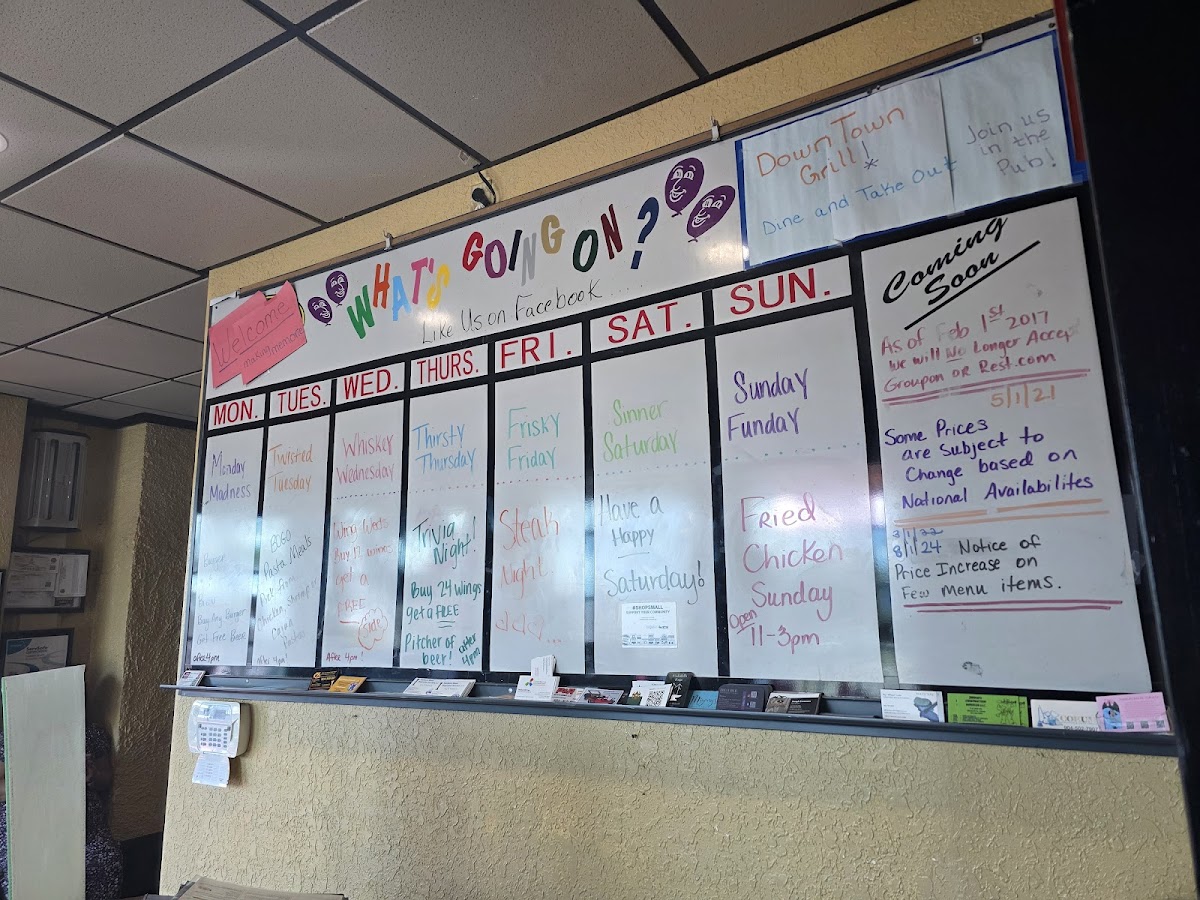 WHAT'S GOING ON?
Like Us on Facebook......
Welcome
making memories
DownTown
Grill!*
Dine and Take Out
Join us
in the
Pub!
MON.
Monday
Madness
Buy Any Burger
Get Free Beer
after 4pm
TUES.
Twisted
Tuesday
BOGO
Pasta Meals
After 4pm
WED.
Whiskey
Wednesday
Buy 12 wings
get a
FREE
After 4pm!
THURS.
Thirsty
Thursday
Trivia
Night!
Buy 24 wings
get a FREE
Pitcher of
beer!
after
4pm
FRI.
Frisky
Friday
Steak
Night
SAT.
Sinner
Saturday
Have a
Happy
Saturday!
#SHOPSMALL
SUN.
Sunday
Funday
Fried
Chicken
Sunday
Open
11-3pm
Coming
Soon
As of Feb 1st 2017
We will No Longer Accept
Groupon or Rest.com
5/1/21
Some Prices
are Subject to
Change based on
National Availabilites
8/1/24 Notice of
Price Increase on
Few menu items.